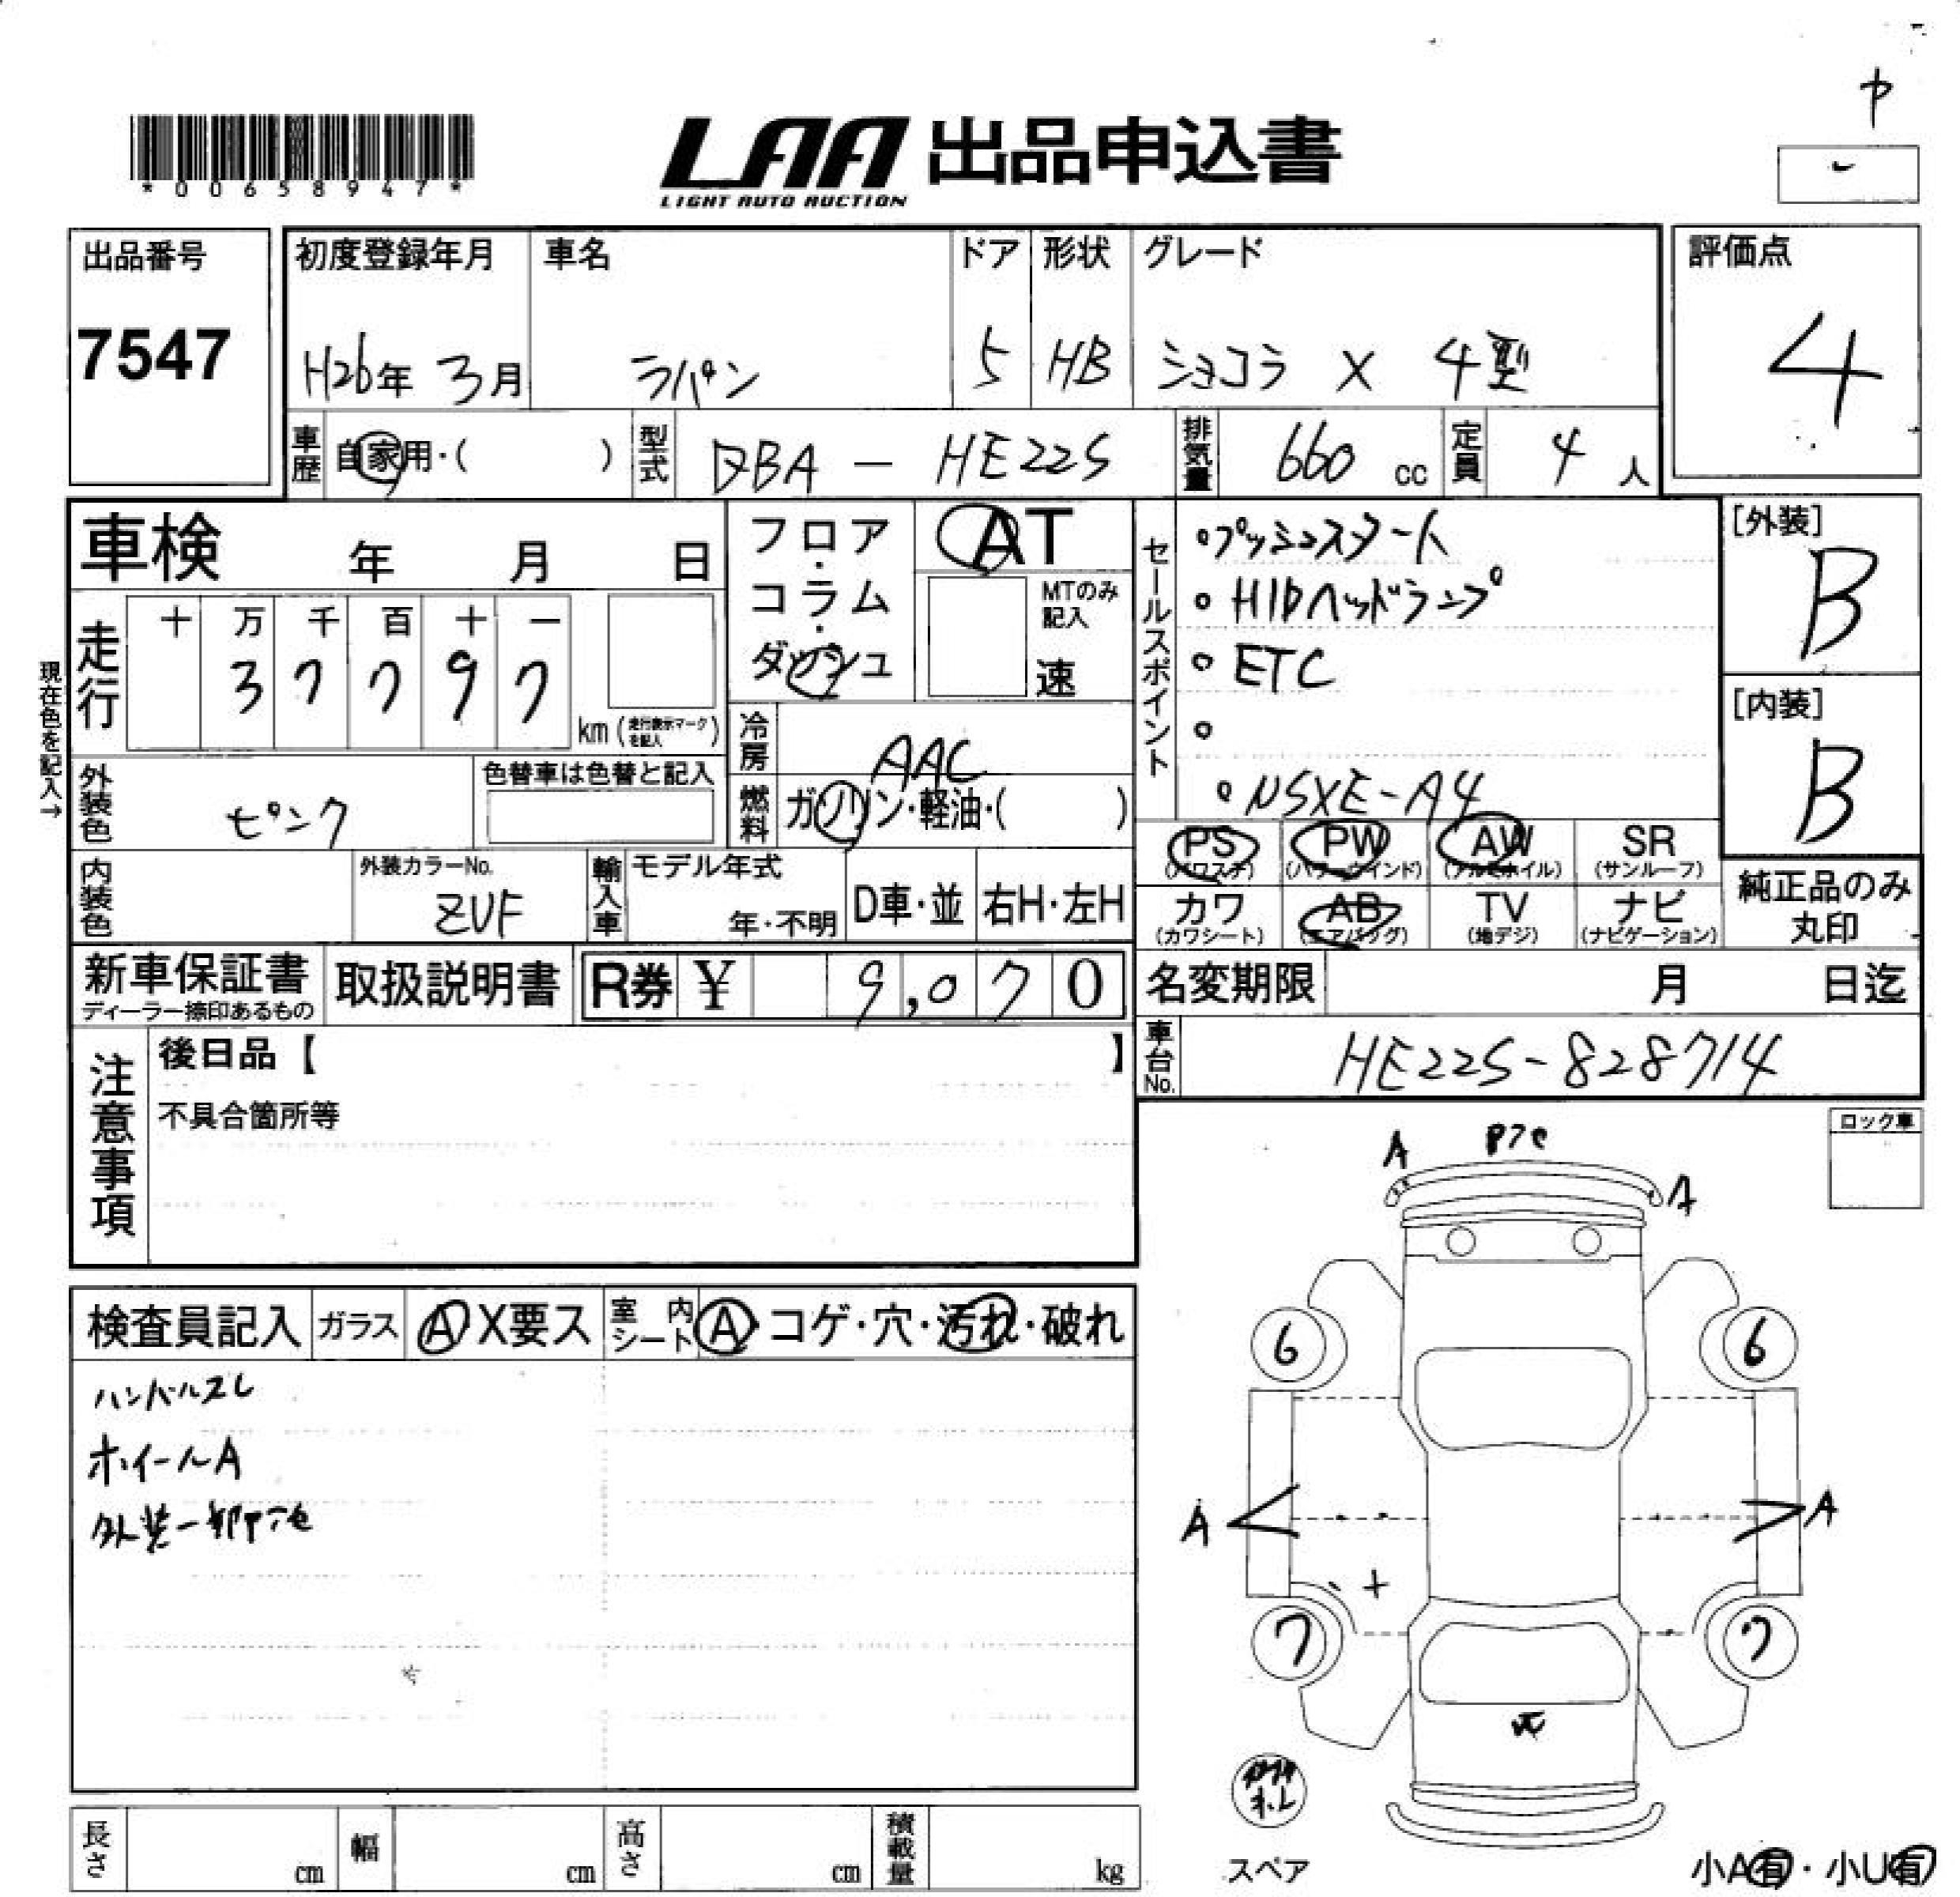 *00658947*
LAA 出品申込書
LIGHT AUTO AUCTION
出品番号
7547
初度登録年月
H26年 3月
車名
ラパン
ドア
5
形状
HB
グレード
ショコラ X 4型
評価点
4
車歴
自家用・( )
型式
DBA - HE22S
排気量
660 cc
定員
4 人
車検 年 月 日
フロア・コラム・ダッシュ
AT
MTのみ記入
速
セールスポイント
・プッシュスタート
・HIDヘッドランプ
・ETC
・
・NSXE-A4
[外装]
B
[内装]
B
現在色を記入→
走行
十 万 千 百 十 一
3 7 7 9 7
km (走行表示マークを記入)
冷房
AAC
外装色
ピンク
色替車は色替と記入
燃料
ガソリン・軽油・( )
PS (パワステ)
PW (パワーウインド)
AW (アルミホイル)
SR (サンルーフ)
カワ (カワシート)
AB (エアバッグ)
TV (地デジ)
ナビ (ナビゲーション)
純正品のみ丸印
内装色
外装カラーNo.
ZUF
輸入車
モデル年式
年・不明
D車・並
右H・左H
新車保証書
ディーラー捺印あるもの
取扱説明書
R券 ¥ 9,070
名変期限 月 日迄
車台No.
HE22S-828714
注意事項
後日品【 】
不具合箇所等
ロック車
A
A
6
6
A
A
7
7
スペア
小A有・小U有
検査員記入
ガラス
A X要ス
室内シート
A・コゲ・穴・汚れ・破れ
ハンドルスレ
ホイールA
外装一部
長さ cm
幅 cm
高さ cm
積載量 kg